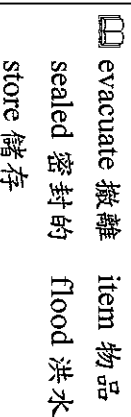 evacuate 撤離 item 物品
sealed 密封的 flood 洪水
store 儲存